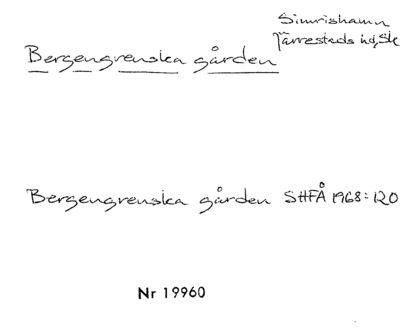 Simrishamn
Järrestads hd, Sk
Bergengrenska gården
Bergengrenska gården SHFÅ 1968:120
Nr 19960